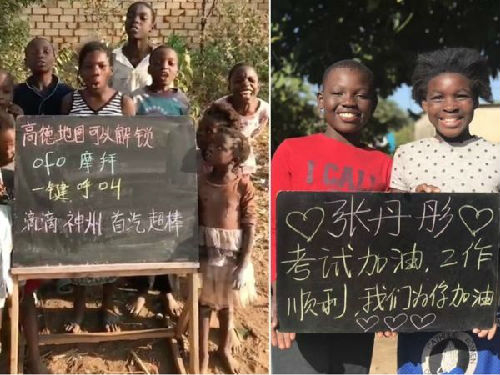 高德地图可以解锁
ofo 摩拜
一键呼叫
滴滴 神州 首汽 超棒
♡张丹彤♡
考试加油,工作
顺利,我们为你加油
♡♡♡
I CAN